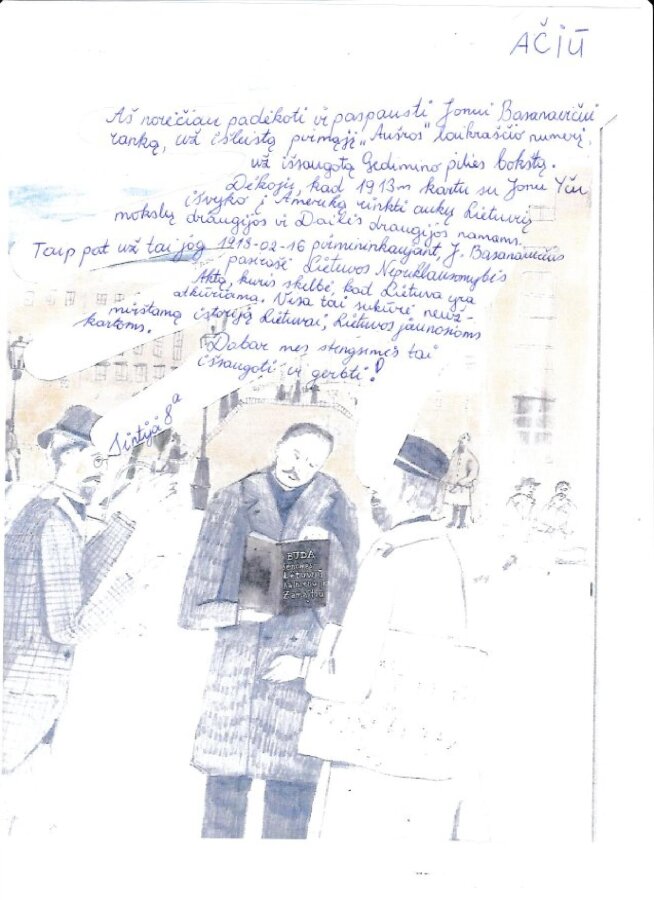 AČIŪ
Aš norėčiau padėkoti ir paspausti Jonui Basanavičiui
ranką, už išleistą pirmąjį „Aušros" laikraščio numerį,
už išsaugotą Gedimino pilies bokštą.
Dėkoju, kad 1913m kartu su Jonu Yču
išvyko į Ameriką rinkti aukų Lietuvių
mokslų draugijos ir Dailės draugijos namams.
Taip pat už tai jog 1918-02-16 pirmininkaujant, J. Basanavičius
pasirašė Lietuvos Nepriklausomybės
Aktą, kuris skelbė, kad Lietuva yra
atkuriama. Visa tai sukūrė neuž-
mirštamą istoriją Lietuvai, Lietuvos jaunosioms
kartoms.
Dabar mes stengsimės tai
išsaugoti ir gerbti!
Sintija 8a
BUDA
Senovės
Lietuvių
Kalbėnų ir
Žemaitių